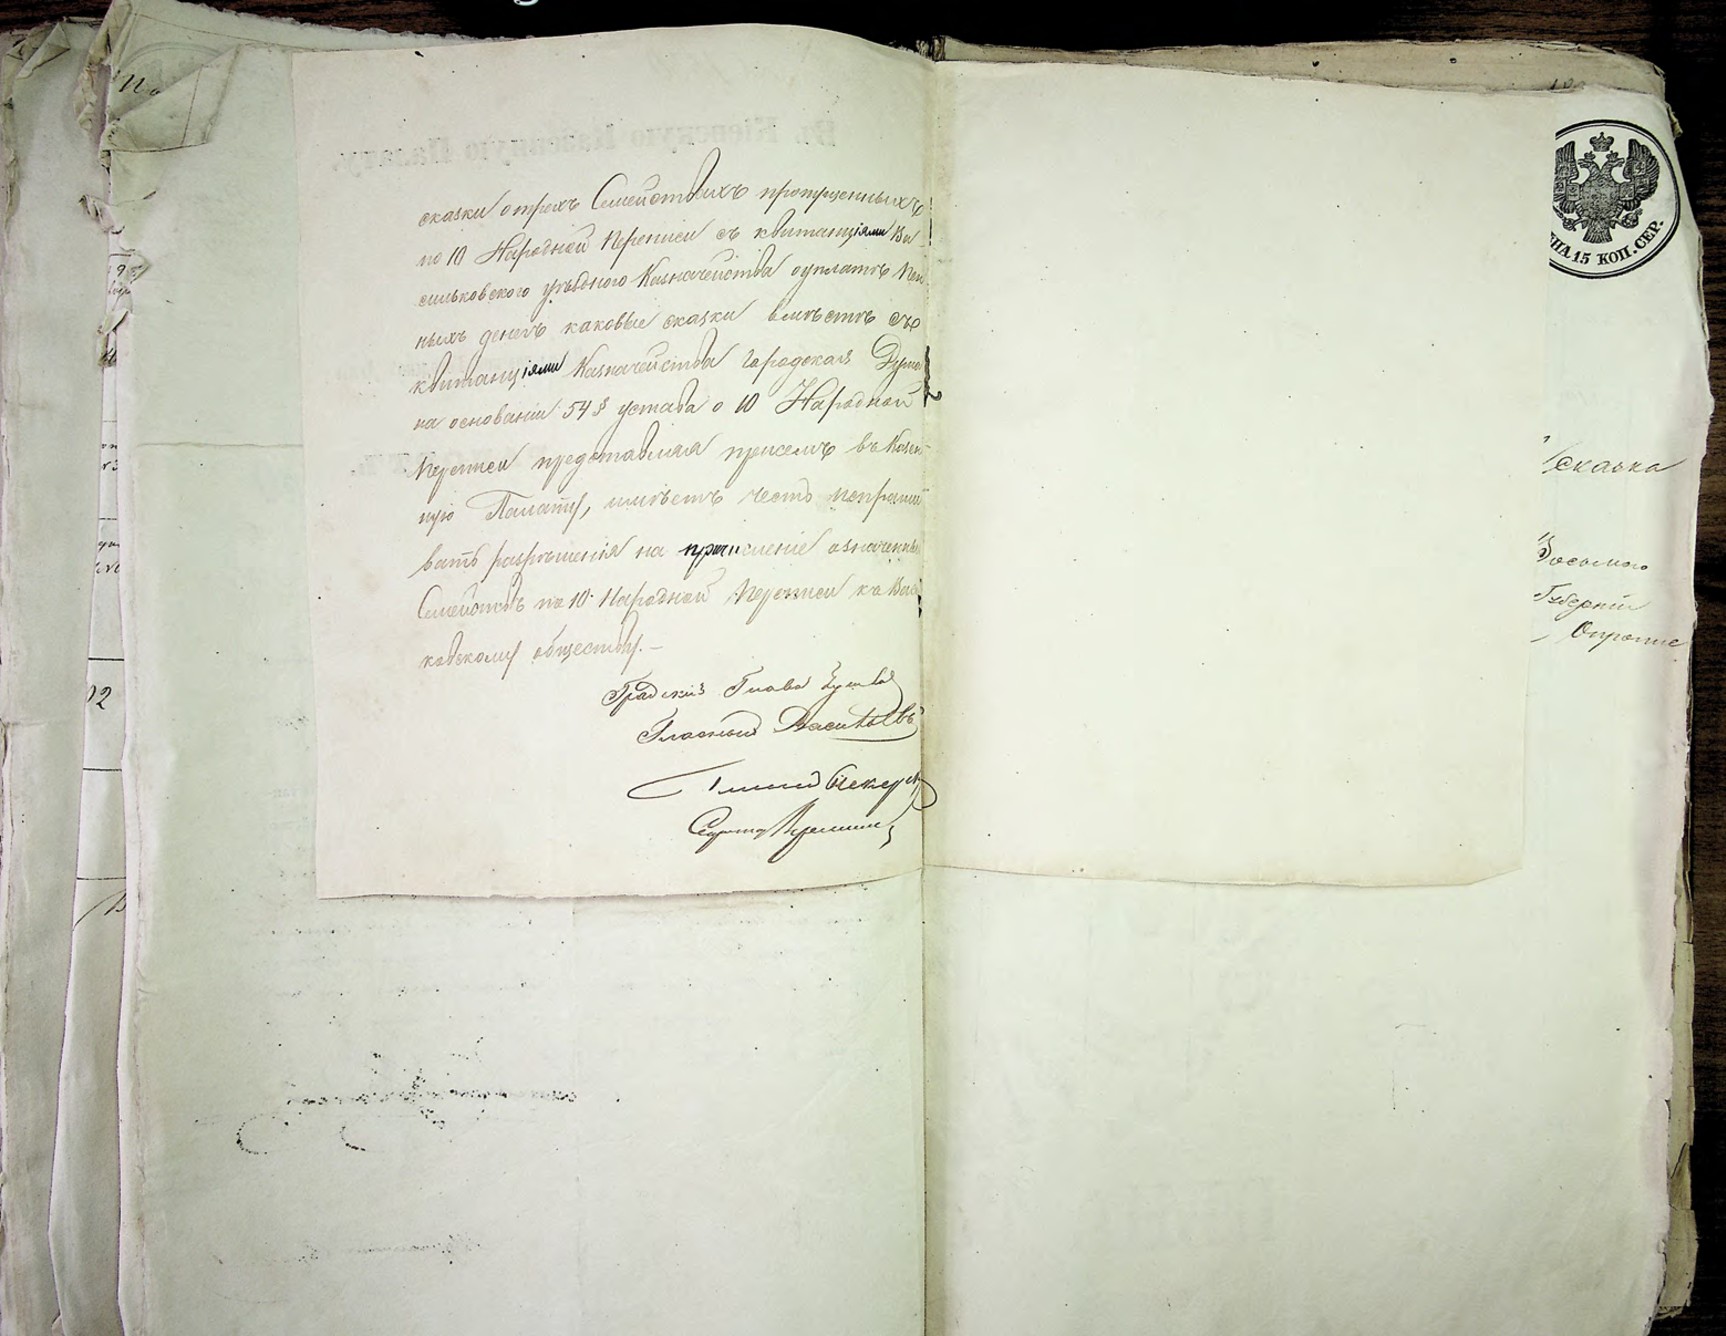 сказки о трехъ Семействахъ пропущенныхъ
по 10 Народной Переписи съ квитанціями Ва
сильковского уѣздного Казначейства о уплатѣ Пен
ныхъ денегъ каковые сказки вмѣстѣ съ
квитанціями Казначейства Городская Дума
на основаніи 54 § устава о 10 Народной
Переписи представляя присемъ въ Казен
ную Палату, имѣетъ честь испраши
вать разрѣшенія на причисленіе означенныхъ
Семействъ по 10 Народной Переписи къ Василь
ковскому обществу.
Градскій Глава
Гласный Васильевъ
Гласный
Секретарь
ЦѢНА 15 КОП. СЕР.
сказка
Восьмого
Губерніи
О
Въ Кіевскую Казенную Палату.